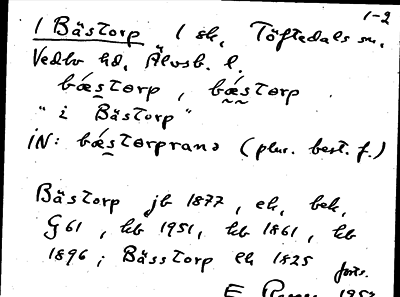 1-2
1 Bästorp 1 sk, Töftedals sn.
Vedbo hd. Älvsb. l.
bǽstorp , bǽstorp .
" i Bästorp "
iN: bǽstorparana (plur. best. f.)
Bästorp jb 1877, ek, bek,
G61, kb 1951, kb 1861, kb
1896; Bässtorp ek 1825
forts.